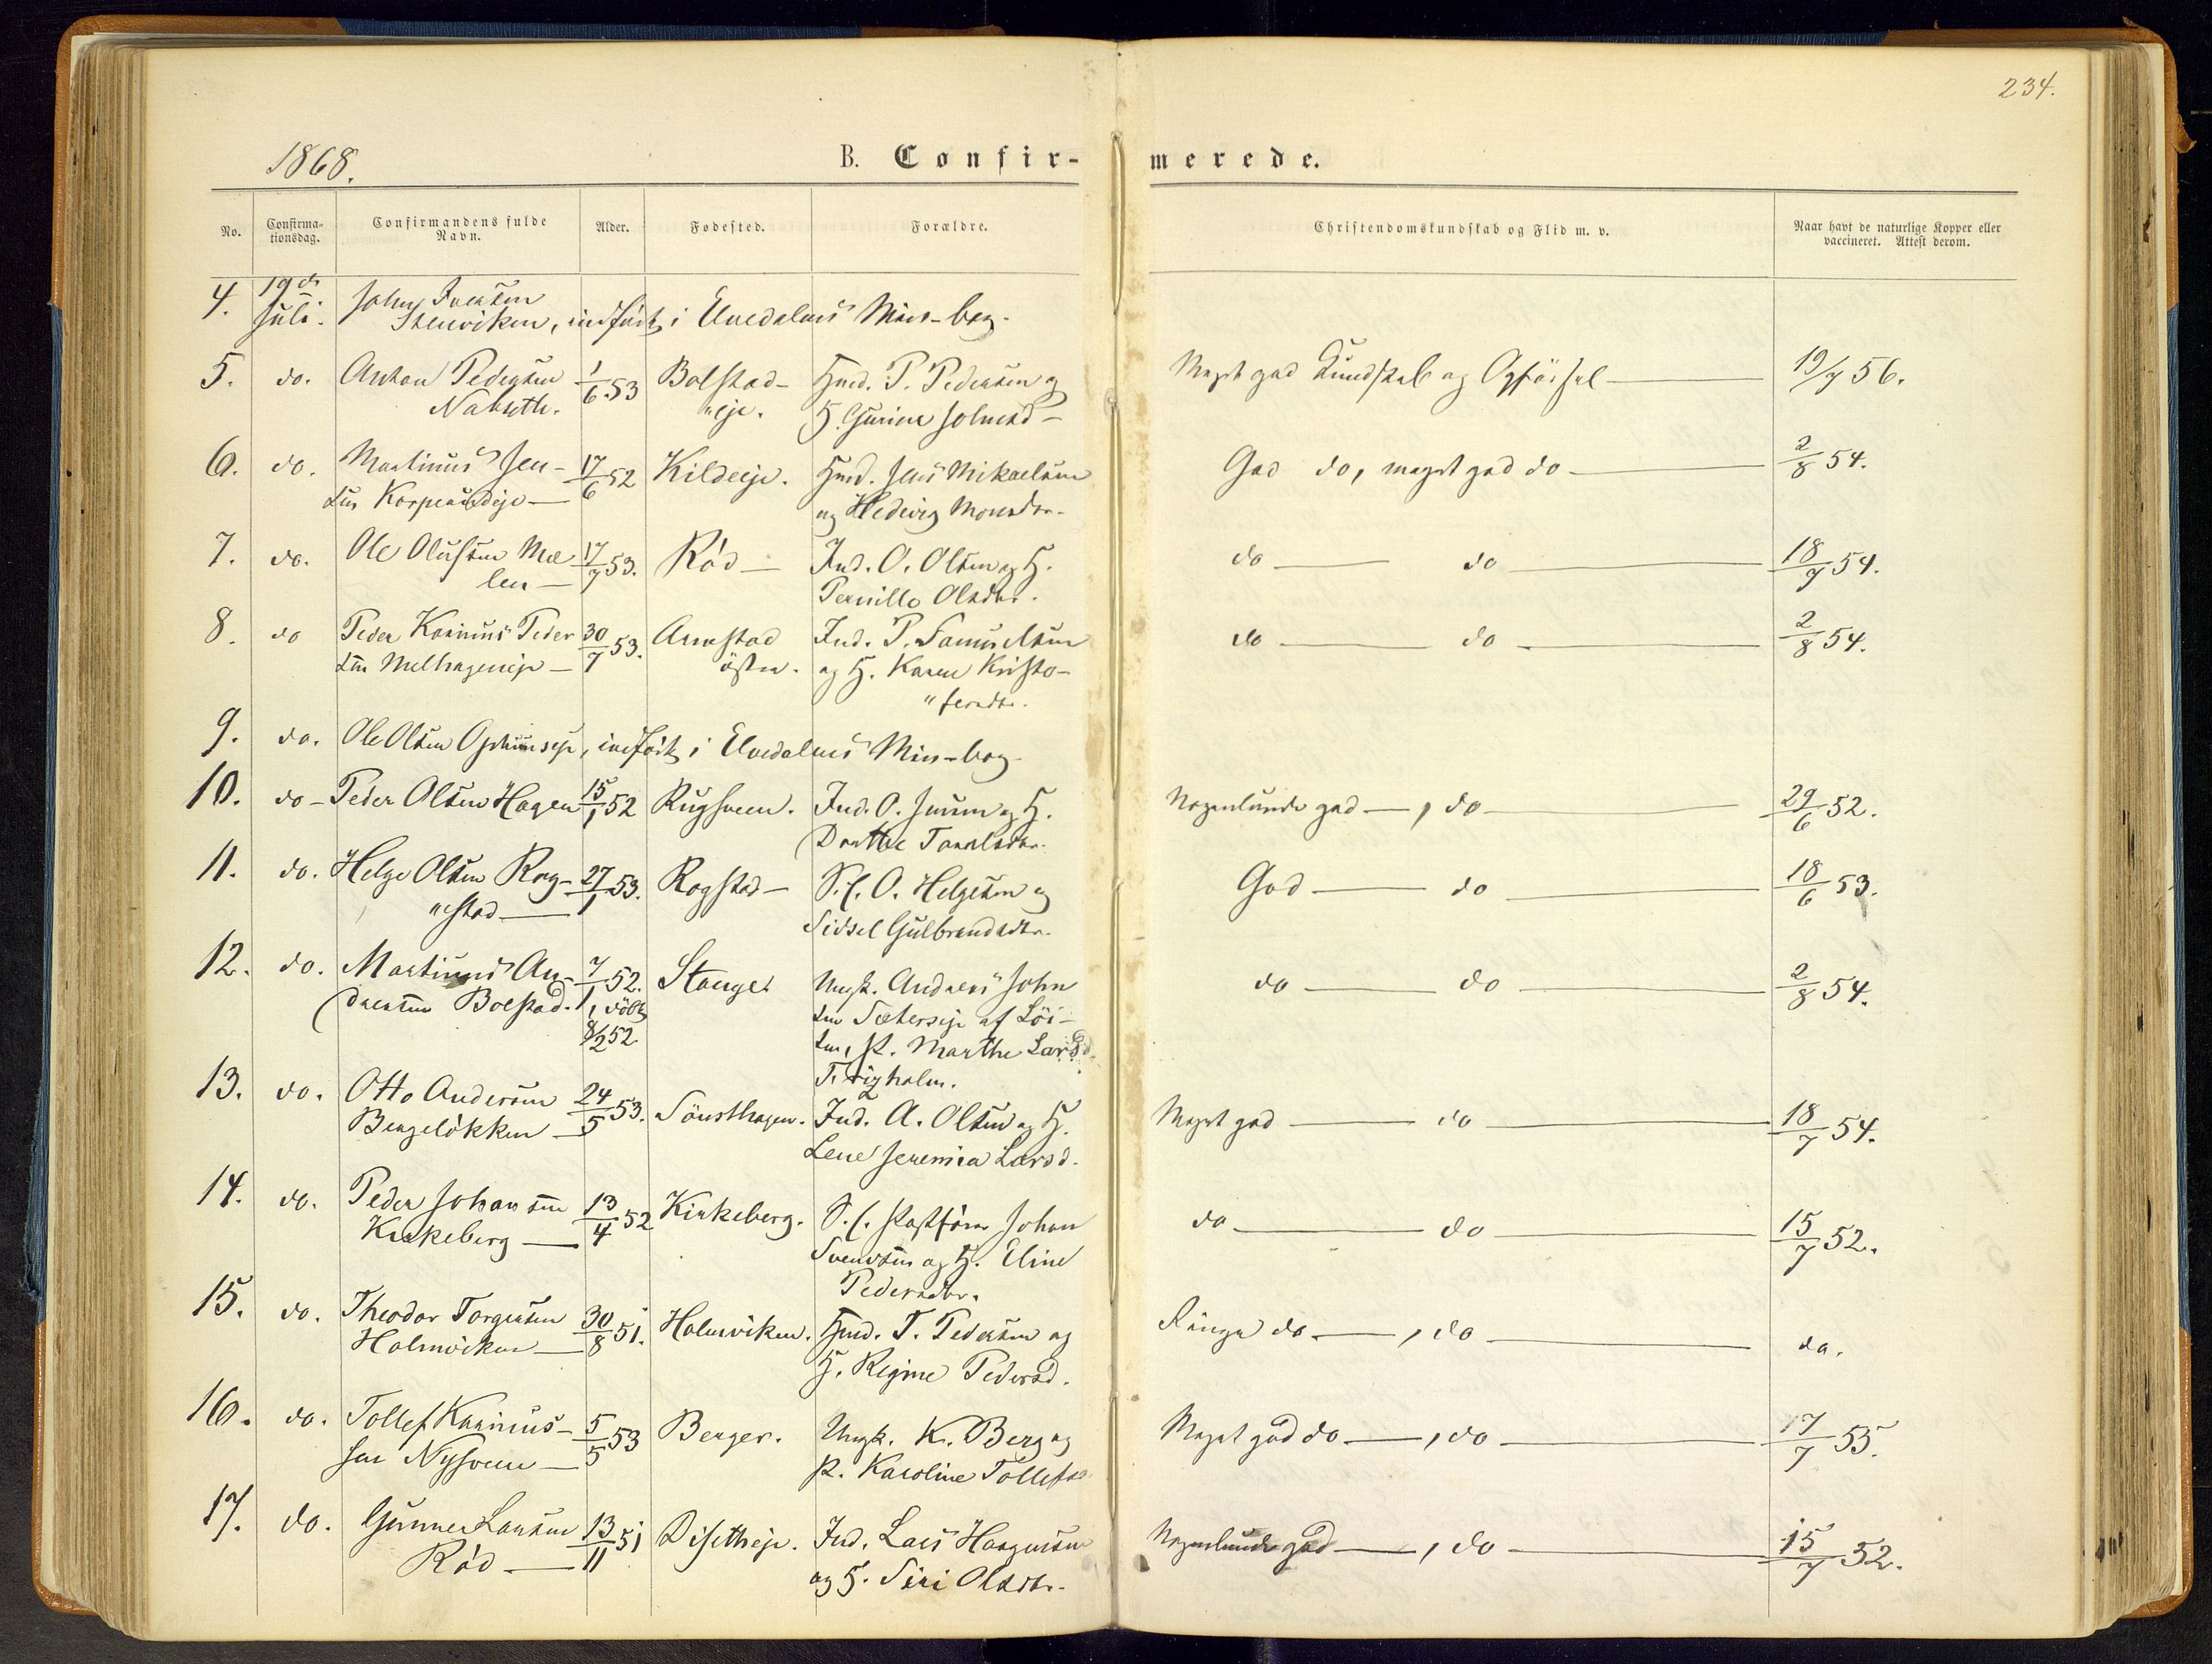 234.
1868. B. Confir- merede.
No. Confirma-tionsdag. Confirmandens fulde Navn. Alder. Fødested. Forældre. Christendomskundskab og Flid m. v. Naar havt de naturlige Kopper eller vaccineret. Attest derom.
4. 19de Juli. John Iversen
Stenviken, indført i Elvedalens Min-bog.
5. do. Anton Pedersen 1/6 53 Bolstad- Gmd. P. Pedersen og Meget god Kundskab og Opførsel 19/7 56.
"eje. H. Gurine Johnsd-
6. do. Martinus Jen- 17/6 52 Kildeeje. Hmd. Jens Mikaelsen God do, meget god do 2/8 54.
sen og Hedevig Monsdr.
7. do. Ole Olufsen Mæ- 17/7 53. Rød Ind. O. Olsen og H. do do 18/7 54.
len Pernille Olsdtr.
8. do Peder Karinus Peder 30/7 53. Arnestad Ind. P. Samuelsen do do 2/8 54.
sen Melhageneje østre. og H. Karen Kristo-
"fersdtr.
9. do. Ole Olsen indført i Elvedalens Min-bog
10. do Peder Olsen Hagen 15/1 52 Rugsveen. Ind. O. Jensen og H. Nogenlunde god , do 29/6 52.
Dorthe
11. do. Helge Olsen Rog- 27/1 53. Rogstad S.E. O. Helgesen og God do 18/6 53.
"stad Sidsel Gulbrandsdtr.
12. do. Martinus An- 7/1 52. Stange Ungk. Andreas John do do 2/8 54.
dreasen Bolstad. , døbt sen Sæterseje af Löi-
8/2 52. ten, P. Marthe Larsd.
13. do. Otto Andersen 24/5 53. Sönsthagen. Ind. A. Olsen og H. Meget god do 18/7 54.
Bergeløkken Lene Jeremia Larsd.
14. do. Peder Johansen 13/4 52 Kirkeberg. S.E. Postförer Johan do do 15/7 52.
Kirkeberg Svendsen og H. Eline
Pedersdtr.
15. do. Theodor Torgersen 30/8 51. Holmviken. Hmd. T. Pedersen og Ringe do , do do.
Holmviken H. Regine Pedersd.
16. do. Tollef Karinus- 5/5 53 Berger. Ungk. K. Berg og Meget god do , do 17/7 55.
sen Nysveen P. Karoline Tollefsd
17. do. Gunner Larsen 13/11 51 Disetheje. Ind. Lars Haagensen Nogenlunde god , do 15/7 52.
Rød og H. Siri Olsdtr.